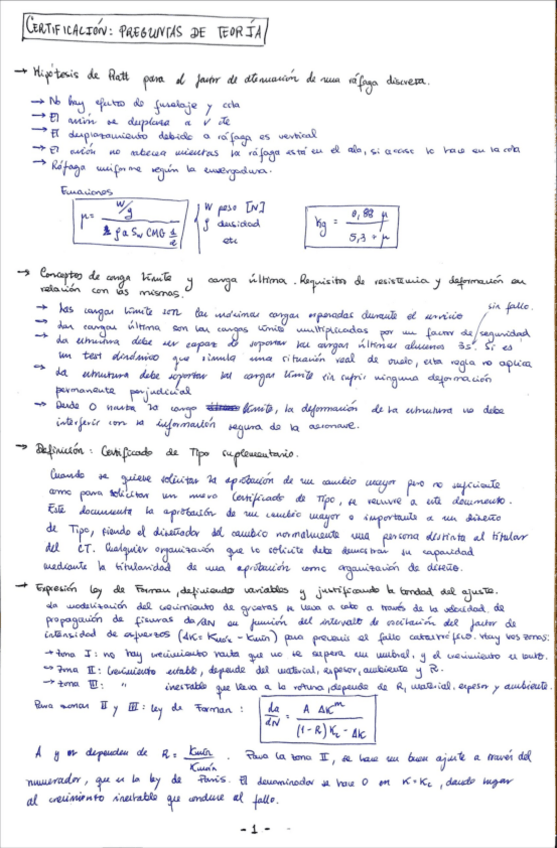 CERTIFICACIÓN: PREGUNTAS DE TEORÍA
→ Hipótesis de Pratt para el factor de atenuación de una ráfaga discreta.
→ No hay efectos de fuselaje y cola
→ El avión se desplaza a V cte
→ El desplazamiento debido a ráfaga es vertical
→ El avión no cabecea mientras la ráfaga está en el ala, si acaso lo hace en la cola
→ Ráfaga uniforme según la envergadura.
Ecuaciones
μ = W/g / ρ a Sw CMG
W peso [N]
ρ densidad
etc
Kg = 0,88 μ / 5,3 + μ
→ Conceptos de carga límite y carga última. Requisitos de resistencia y deformación en
relación con las mismas.
→ Las cargas límite son las máximas cargas esperadas durante el servicio
→ Las cargas última son las cargas límite multiplicadas por un factor de seguridad
sin fallo.
→ La estructura debe ser capaz de soportar las cargas últimas al menos 3s. Si es
un test dinámico que simula una situación real de vuelo, esta regla no aplica
→ La estructura debe soportar las cargas límite sin sufrir ninguna deformación
permanente perjudicial
→ Desde 0 hasta la carga límite, la deformación de la estructura no debe
interferir con la información segura de la aeronave.
→ Definición: Certificado de Tipo suplementario.
Cuando se quiere solicitar la aprobación de un cambio mayor pero no suficiente
como para solicitar un nuevo Certificado de Tipo, se recurre a este documento.
Este documenta la aprobación de un cambio mayor o importante a un diseño
de Tipo, siendo el diseñador del cambio normalmente una persona distinta al titular
del CT. Cualquier organización que lo solicite debe demostrar su capacidad
mediante la titularidad de una aprobación como organización de diseño.
→ Expresión ley de Forman, definiendo variables y justificando la bondad del ajuste.
La modelización del crecimiento de grietas se lleva a cabo a través de la velocidad de
propagación de fisuras da/dN en función del intervalo de oscilación del factor de
intensidad de esfuerzos (ΔK = Kmáx - Kmín) para prevenir el fallo catastrófico. Hay tres zonas:
→ Zona I: no hay crecimiento hasta que no se supera un umbral, y el crecimiento es lento.
→ Zona II: Crecimiento estable, depende del material, espesor, ambiente y R.
→ Zona III: " inestable que lleva a la rotura, depende de R, material, espesor y ambiente.
Para zonas II y III: ley de Forman: da/dN = A ΔK^m / (1-R) Kc - ΔK
A y m dependen de R = Kmín / Kmáx. Para la zona II, se hace un buen ajuste a través del
numerador, que es la ley de Paris. El denominador se hace 0 en K = Kc, dando lugar
al crecimiento inestable que conduce al fallo.
- 1 -